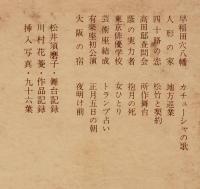 早稲田穴八幡
人形の家
四十勝の恋
高田邸査問会
蔭の実力者
東京俳優学校
芸術座結成
有楽座初公演
大阪の宿
カチューシャの歌
地方巡業
松竹と契約
所作舞台
抱月の死
女ひとり
トランプ占い
正月五日の朝
夜明け前
松井須磨子・舞台記録
川村花菱・作品記録
挿入写真・九十六葉